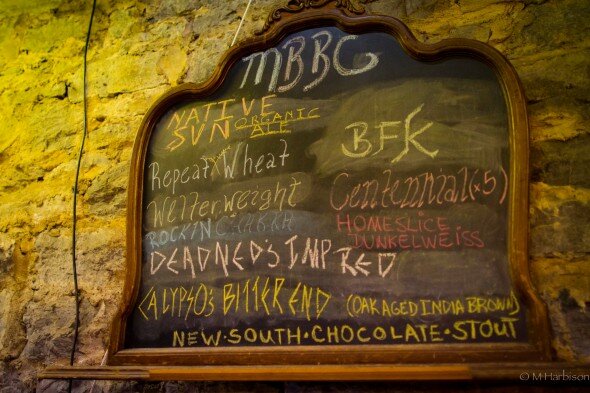 MBBC
NATIVE
SUN ORGANIC
ALE
BFK
Repeat Wheat
Welterweight
Centennial (x5)
ROCKIN
HOMESLICE
DUNKELWEISS
DEADNED'S IMP RED
CALYPSO'S BITTER END (OAK AGED INDIA BROWN)
NEW·SOUTH·CHOCOLATE·STOUT
© M Harbison